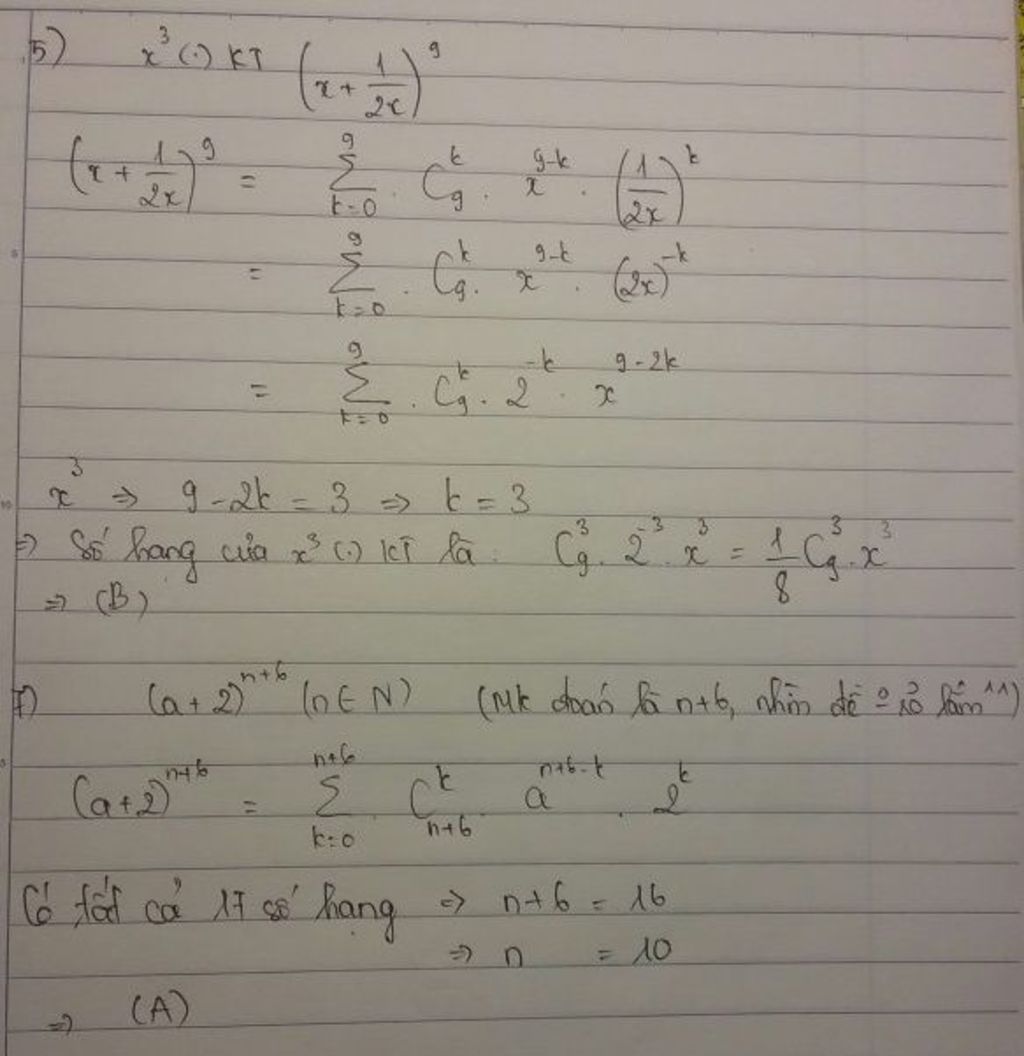 5) x³ (.) KT (x + 1/2x)⁹
(x + 1/2x)⁹ = ∑_{k=0}^{9} . C₉ᵏ . x^{9-k} . (1/2x)^k
= ∑_{k=0}^{9} . C₉ᵏ . x^{9-k} . (2x)^{-k}
= ∑_{k=0}^{9} . C₉ᵏ . 2^{-k} . x^{9-2k}
x³ ⇒ 9-2k = 3 ⇒ k = 3
⇒ Số hang của x³ (.) KT là : C₉³ . 2^{-3} . x³ = 1/8 C₉³ . x³
⇒ (B)
7) (a+2)^{n+6} (n ∈ N) (Mk đoán là n+6, nhìn đề o rõ lắm ^^)
(a+2)^{n+6} = ∑_{k=0}^{n+6} . C_{n+6}^{k} . a^{n+6-k} . 2^k
Có tất cả 17 số hạng ⇒ n+6 = 16
⇒ n = 10
⇒ (A)